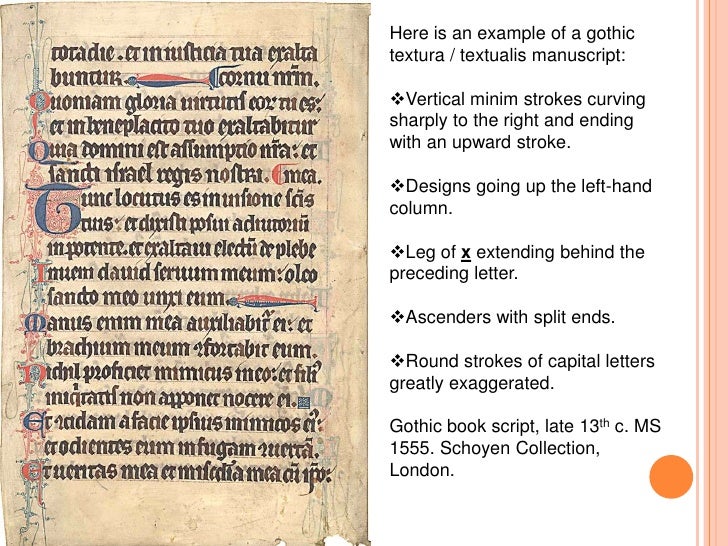 totadie. et in iusticia tua exalta
buntur. Cornu nr̄m.
Quoniam gloria uirtutis eor̄ tu es:
et in beneplacito tuo exaltabitur
Quia domini est assumptio nr̄a: et
sancti israel regis nostri. mea.
Tunc locutus es in uisione sc̄is
tuis: et dixisti posui adiutoriū
in potente. et exaltaui electū de plebe
Inueni dauid seruum meum: oleo
sancto meo unxi eum.
Manus enim mea auxiliabit̄ ei: et
brachium meum ⁊fortabit eum.
Nichil proficiet inimicus in eo: et fili᷒
iniq̇tatis non apponet nocere ei.
Et ⁊cidam a facie ipsius inimicos ei᷒:
et odientes eum in fugam uertā.
Et ueritas mea et mis̄cd̄ia mea cū ip̄o:
Here is an example of a gothic
textura / textualis manuscript:
❖Vertical minim strokes curving
sharply to the right and ending
with an upward stroke.
❖Designs going up the left-hand
column.
❖Leg of x extending behind the
preceding letter.
❖Ascenders with split ends.
❖Round strokes of capital letters
greatly exaggerated.
Gothic book script, late 13th c. MS
1555. Schoyen Collection,
London.